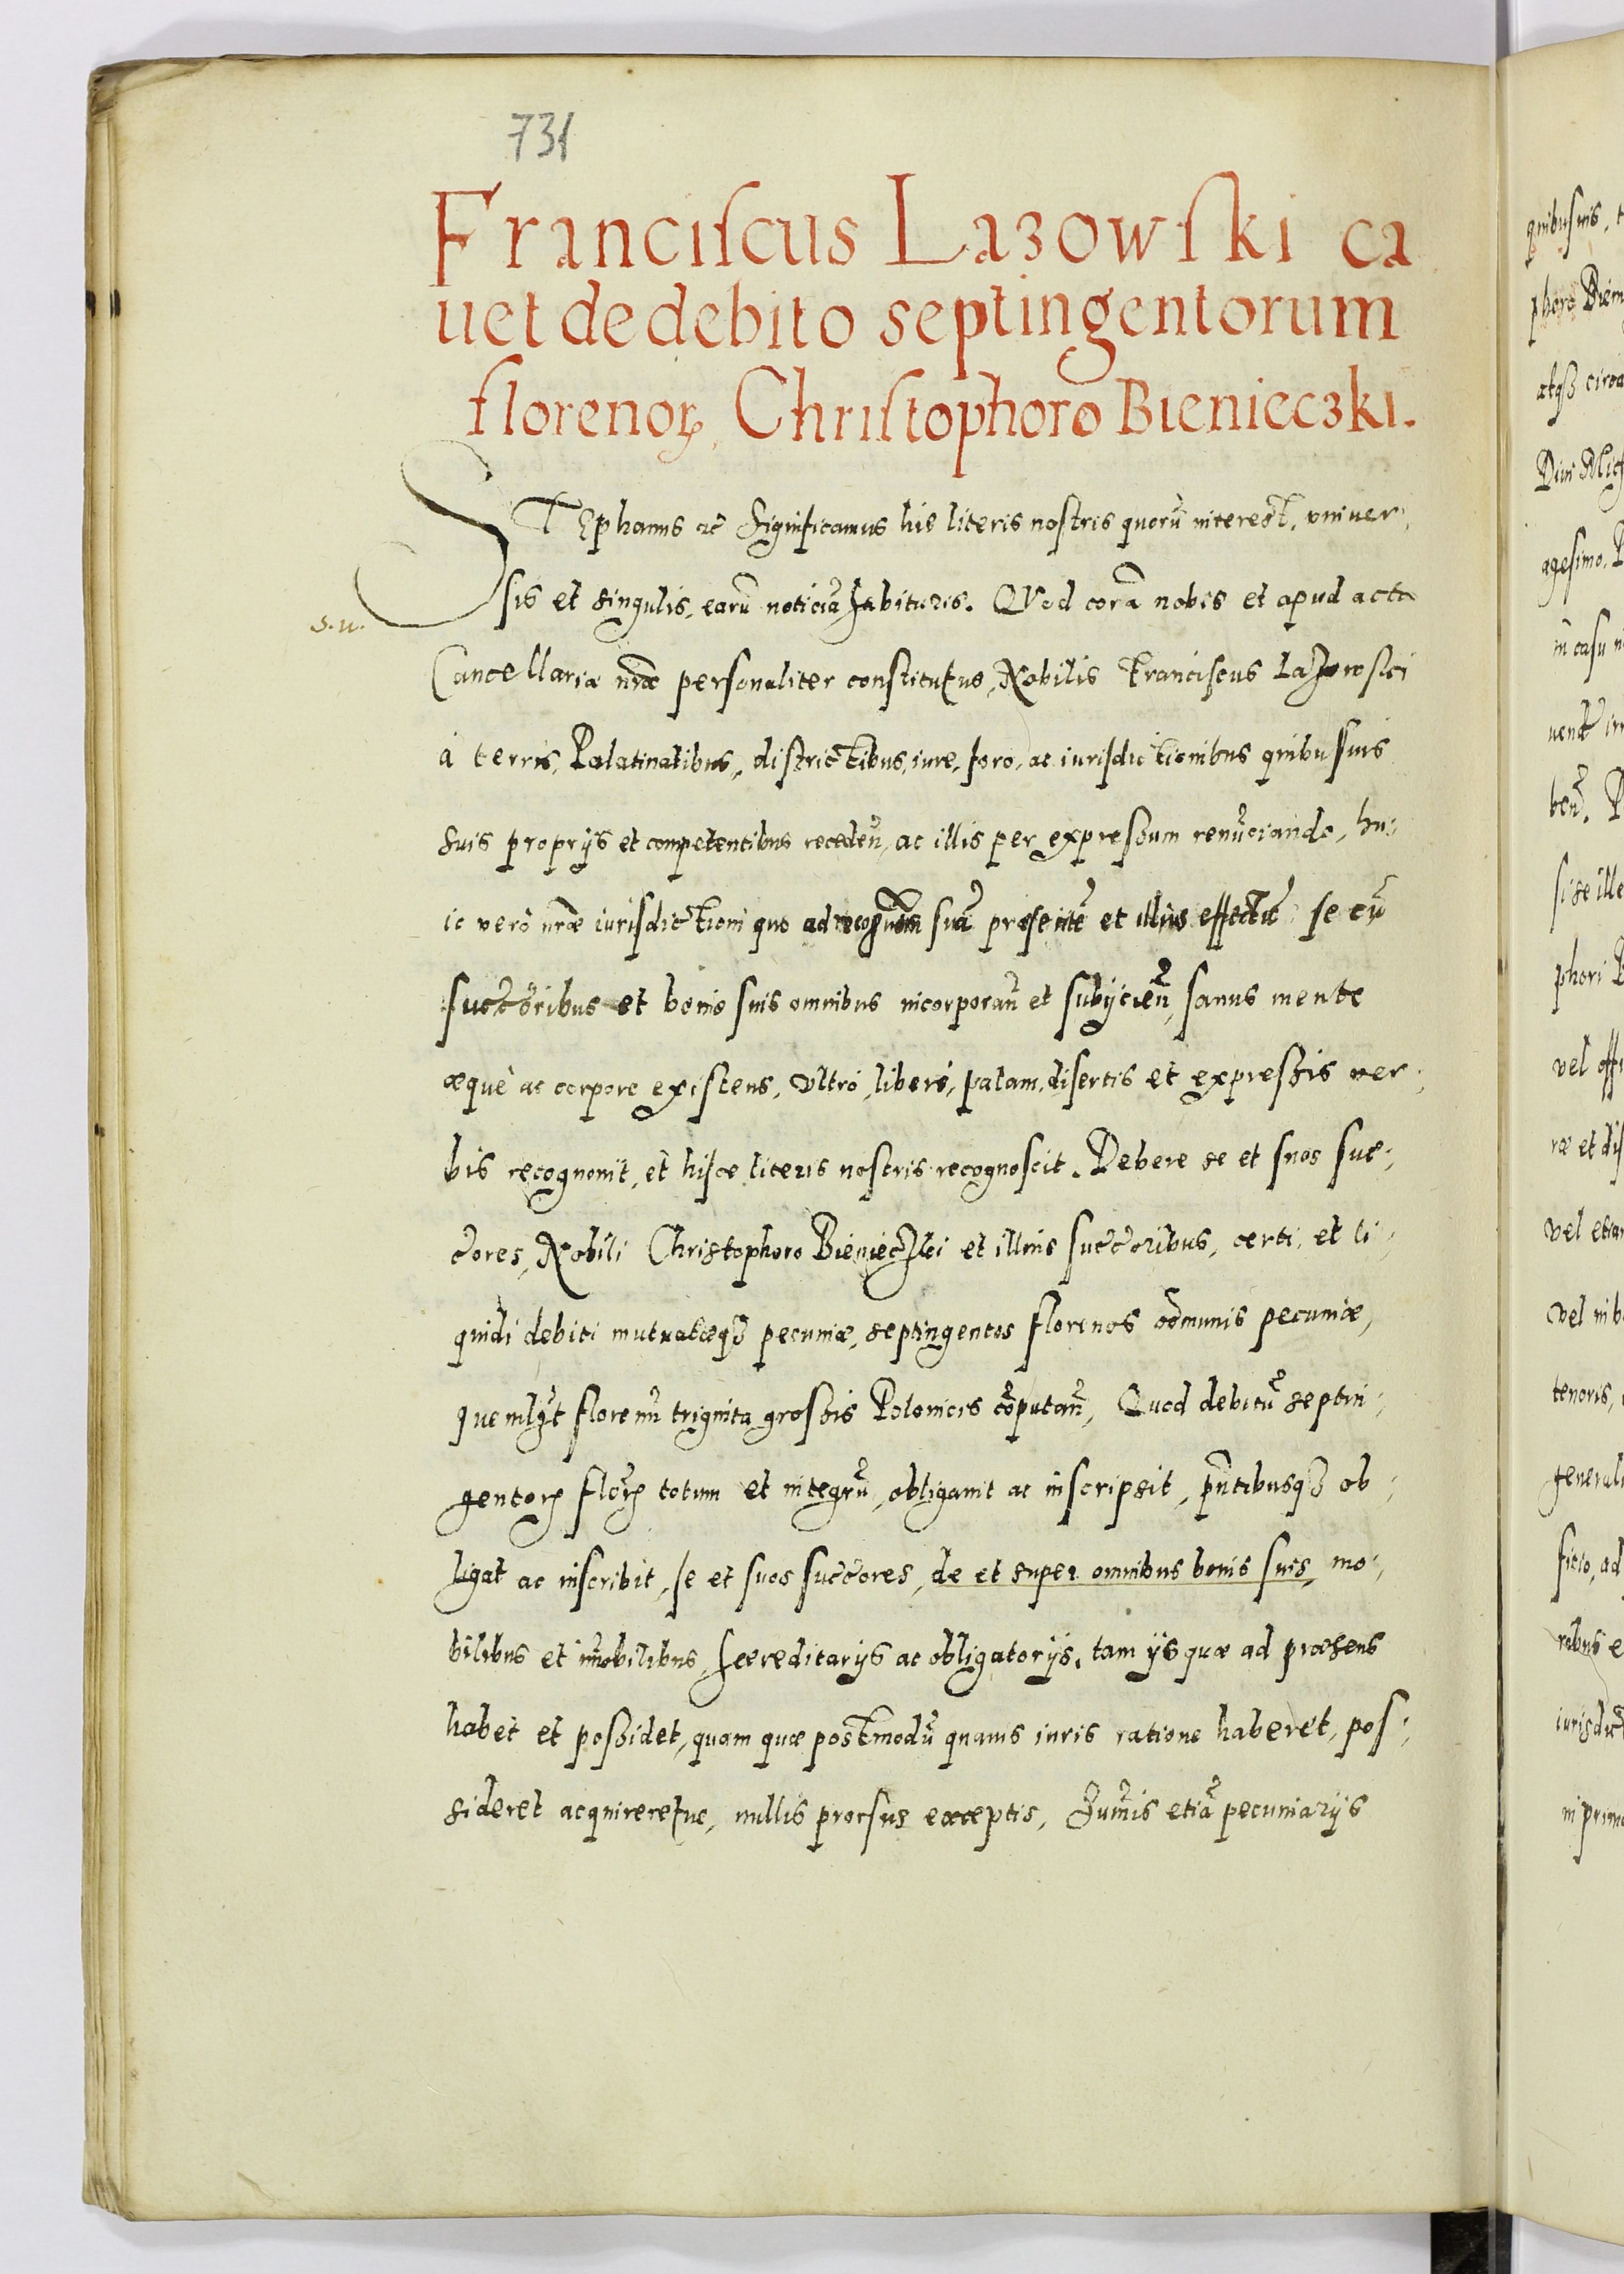 731
Franciscus Lazowski ca
uet de debito septingentorum
florenoꝝ Christophoro Bienieczki.
STEphanus ac Significamus his literis nostris quorũ interest, vniuer,
sis et singulis, earũ noticiã habituris. QVod corã nobis et apud acta
s. u.
Cancellariæ nrãe personaliter constitutus, Nobilis Franciscus Lazowski
à terris, Palatinatibus, districtibus, iure, foro, ac iurisdictionibus quibusuis
suis proprijs et competentibus recedeñ, ac illis per expressum renũciando, hu,,
ic verò nrãe iurisdictioni quo ad recognõem suã præsentẽ et illius effectũ se cũ
succõribus et bonis suis omnibus incorporañ et subijcieñ, sanus mente
æquè ac corpore existens, vltrò, liberè, palam, disertis et expressis ver,,
bis recognouit, et hisce literis nostris recognoscit. Debere se et suos suc,,
cõres, Nobili Christophoro Bienieczki et illius succõribus, certi, et li,,
quidi debiti mutuatæqꝫ pecuniæ, septingentos florenos cõmunis pecuniæ,
quemlꝫt florenũ triginta grossis Polonicis cõputañ, Quod debitũ septin,,
gentoꝝ floꝝ totum et integrũ, obligauit ac inscripsit, pñtibusqꝫ ob,,
ligat ac inscribit, se et suos succõres, de et super omnibus bonis suis, mo,,
bilibus et im̃obilibus, hæreditarijs ac obligatorijs, tam ijs quæ ad præsens
habet et possidet, quam quæ postmodũ quauis iuris ratione haberet, pos,,
sideret acquireretue, nullis prorsus exceptis, Sum̃is etiã pecuniarijs